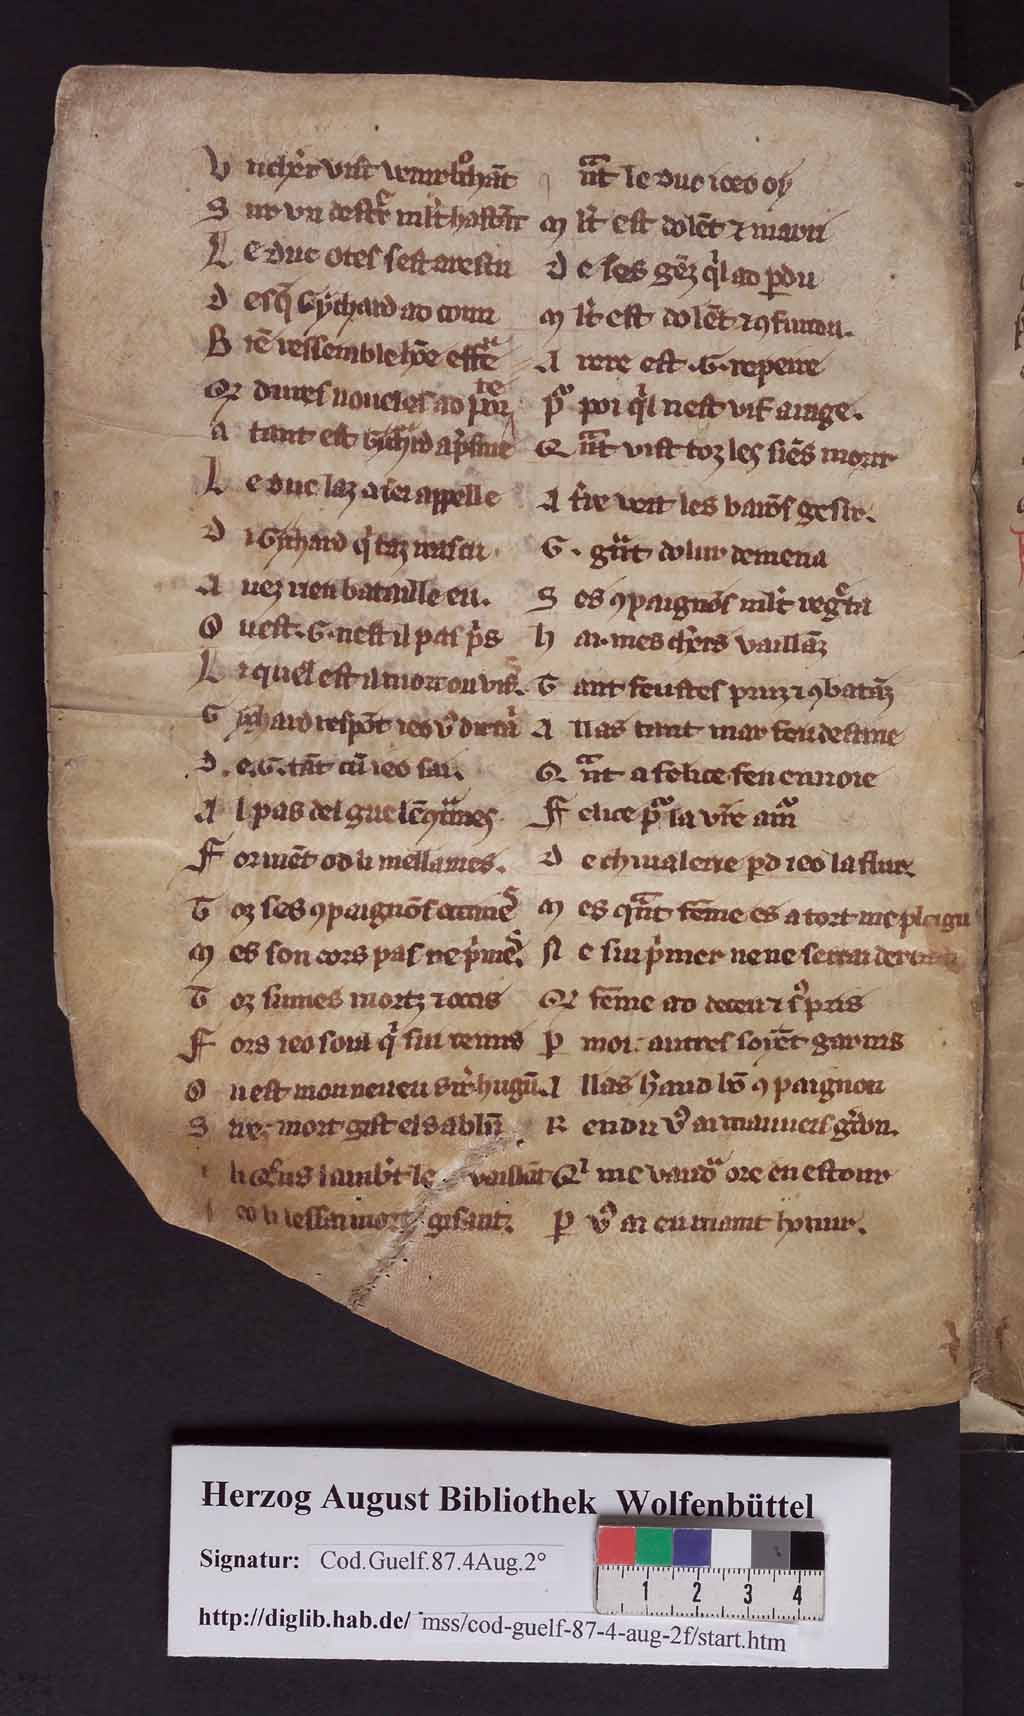 V n cheṽr vist venir brochāt
S ur vn destrer mlt hastāt
L e duc otes sest arestu
D esq̄ Gychard ad conu
B iē ressemble hōe effree
Q dures noueles ad porte
A tant est Gychard aprisme
L e duc laz a sei appelle
D i Gychard q̇ taz nascu
A uez vien bataille eu.
O u est .G. nest il pas pris
L i quel est il mort ou vifs.
G ychard respōt ieo v dirrai
D e .G. tāt cū ieo sai.
A l pas del gue lēcōtrames
F orment od li mellames.
T oz ses ꝯpaignōs occimes
M es son cors pas ne primes.
T oz sumes mortz ⁊ occis
F ors ieo soul q̇ sui remis
O u est mon neueu sir hugū
S ire mort gist el sablū
li Quens lambt le vaillāt
eo li lessai mort gisant
Q nt le duc iceo oy
M lt est dolēt ⁊ marri
D e ses gēz q̇l ad ꝑdu
M lt est dolēt ⁊ ꝯfundu.
A rere est .G. repeire
P poi q̇l nest vif arage.
Q nt vist toz les siēs morir
A tire veit les barōs gesir.
G . grāt dolur demena
S es ꝯpaignōs mlt regreta
H ai mes chers vaillāz
T ant feustes pruz ⁊ ꝯbatāz
A llas tant mar feu destine
Q nt a felice feu enuoie
F elice pur la vre amur
D e chiualerie ꝑd ieo la flur.
M es qnt fēme es a tort me pleigu
N e sui primer ne ne serrai
Q fēme ad deceu ⁊ spris
P moi autres soiēt garnis
A llas haud bō ꝯpaignon
R endu v ai mauueis grdon.
Q i me vaudra ore en estour
P v ai eu maint honur.
Herzog August Bibliothek Wolfenbüttel
Signatur: Cod.Guelf.87.4Aug.2°
http://diglib.hab.de/ mss/cod-guelf-87-4-aug-2f/start.htm
1 2 3 4